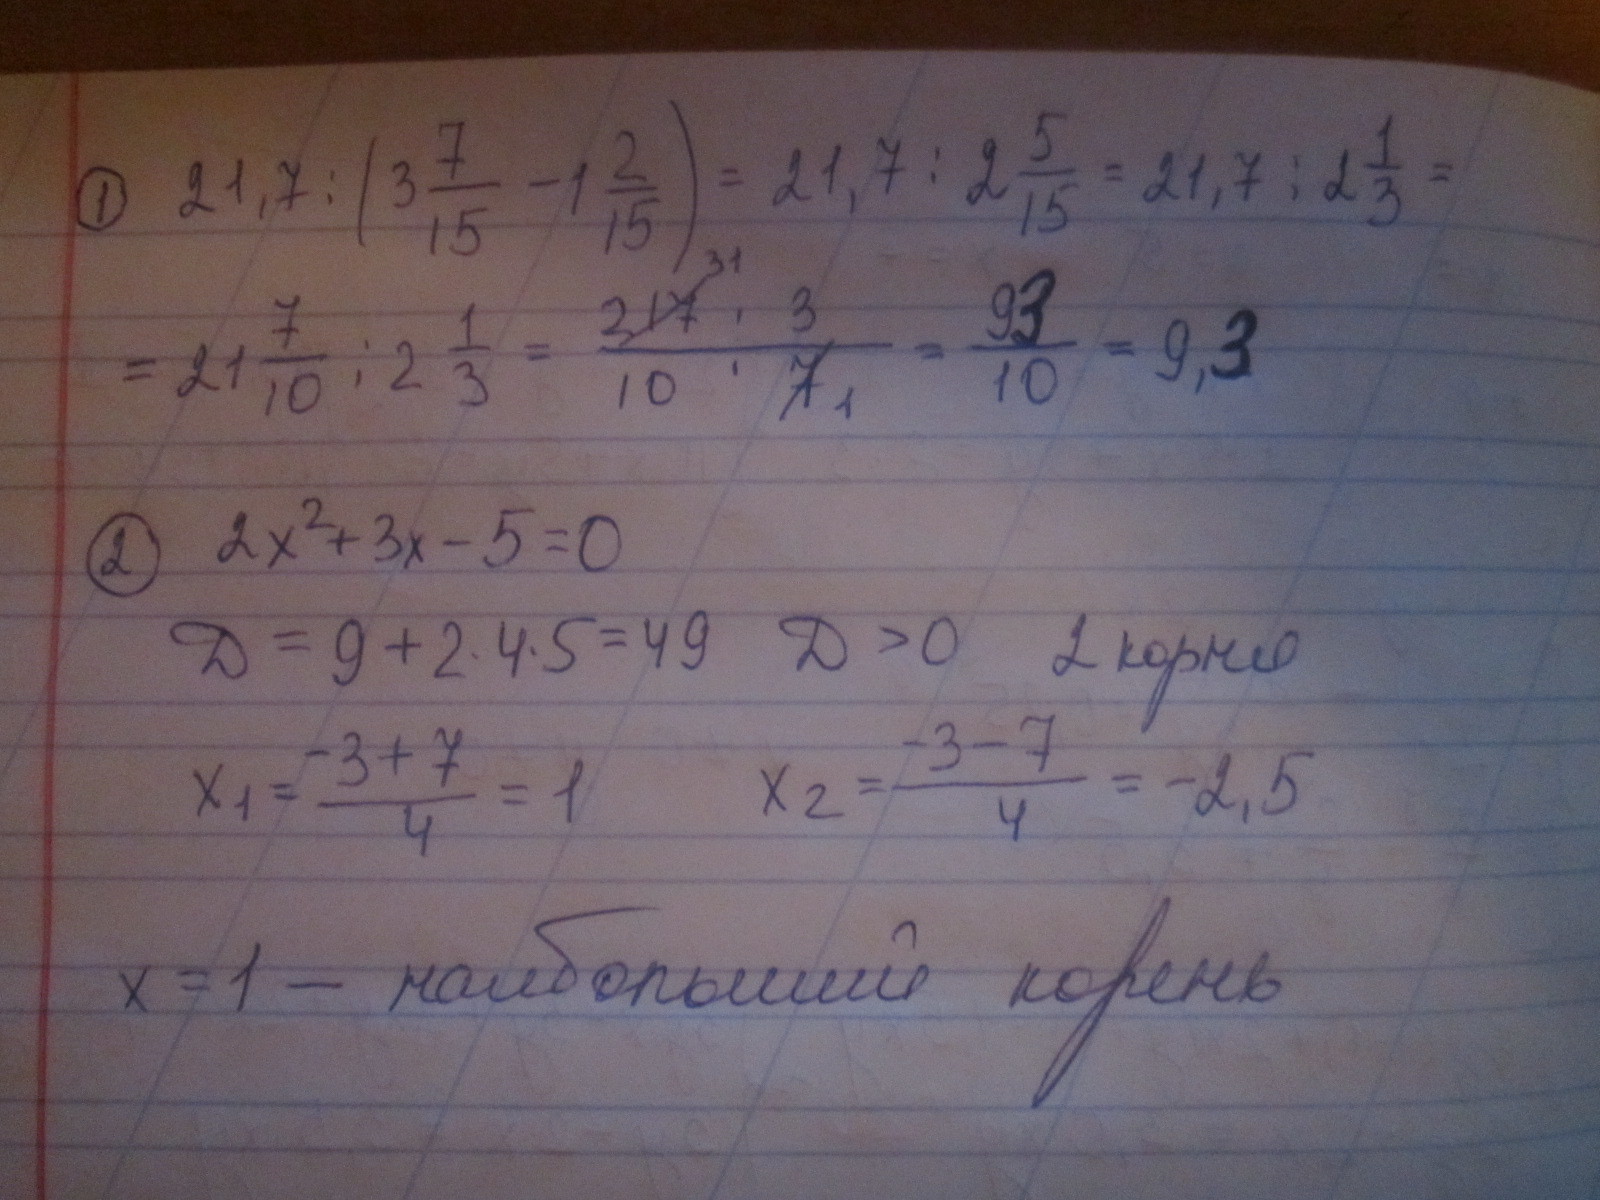 ① 21,7 : (3 7/15 - 1 2/15) = 21,7 : 2 5/15 = 21,7 : 2 1/3 =
= 21 7/10 : 2 1/3 = 217 31 · 3 / 10 · 7 1 = 93/10 = 9,3
② 2x² + 3x - 5 = 0
D = 9 + 2·4·5 = 49 D > 0 2 корня
x₁ = -3+7 / 4 = 1 x₂ = -3-7 / 4 = -2,5
x = 1 — наибольший корень